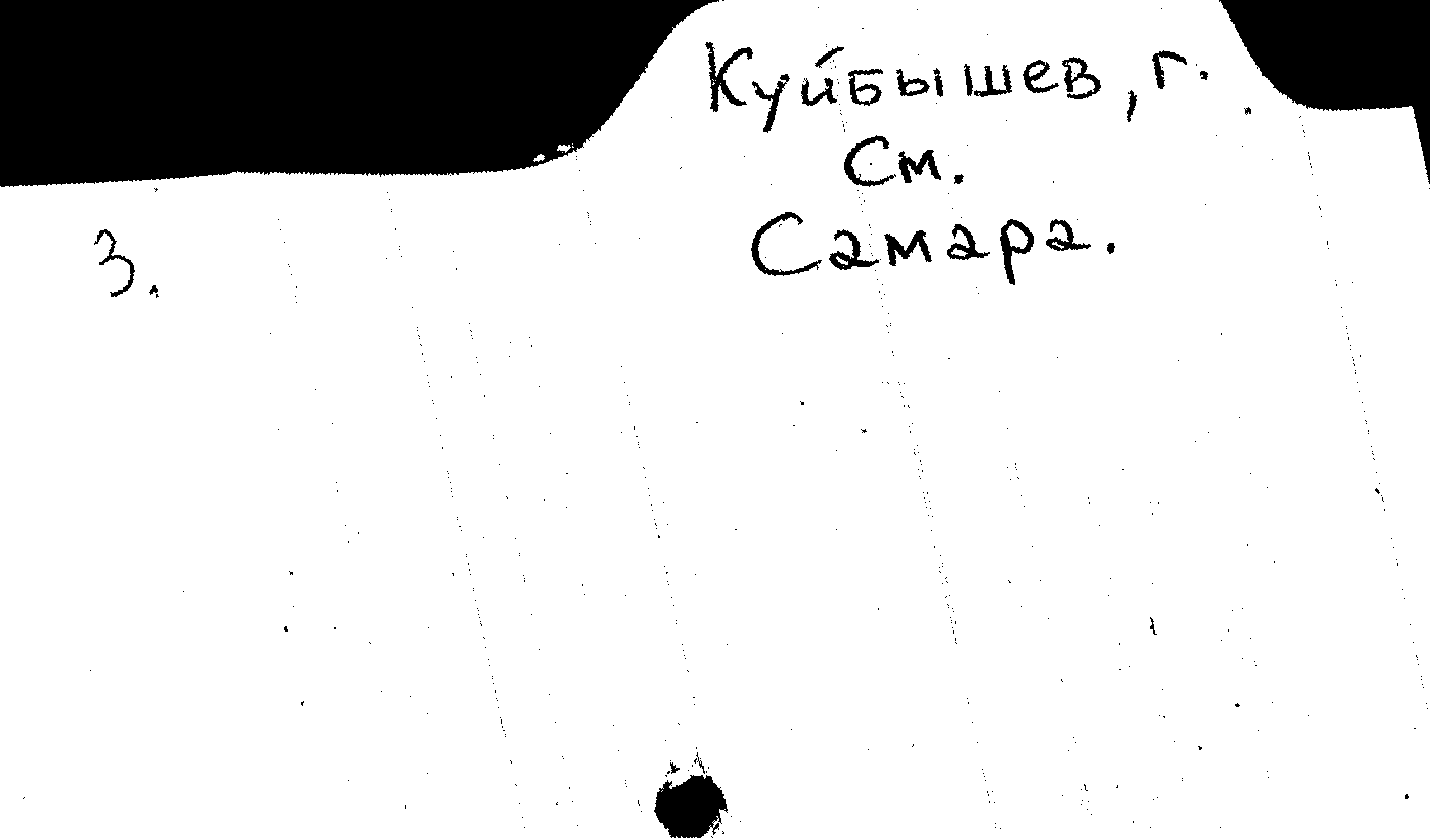 Куйбышев, г.
См.
Самара.
3.